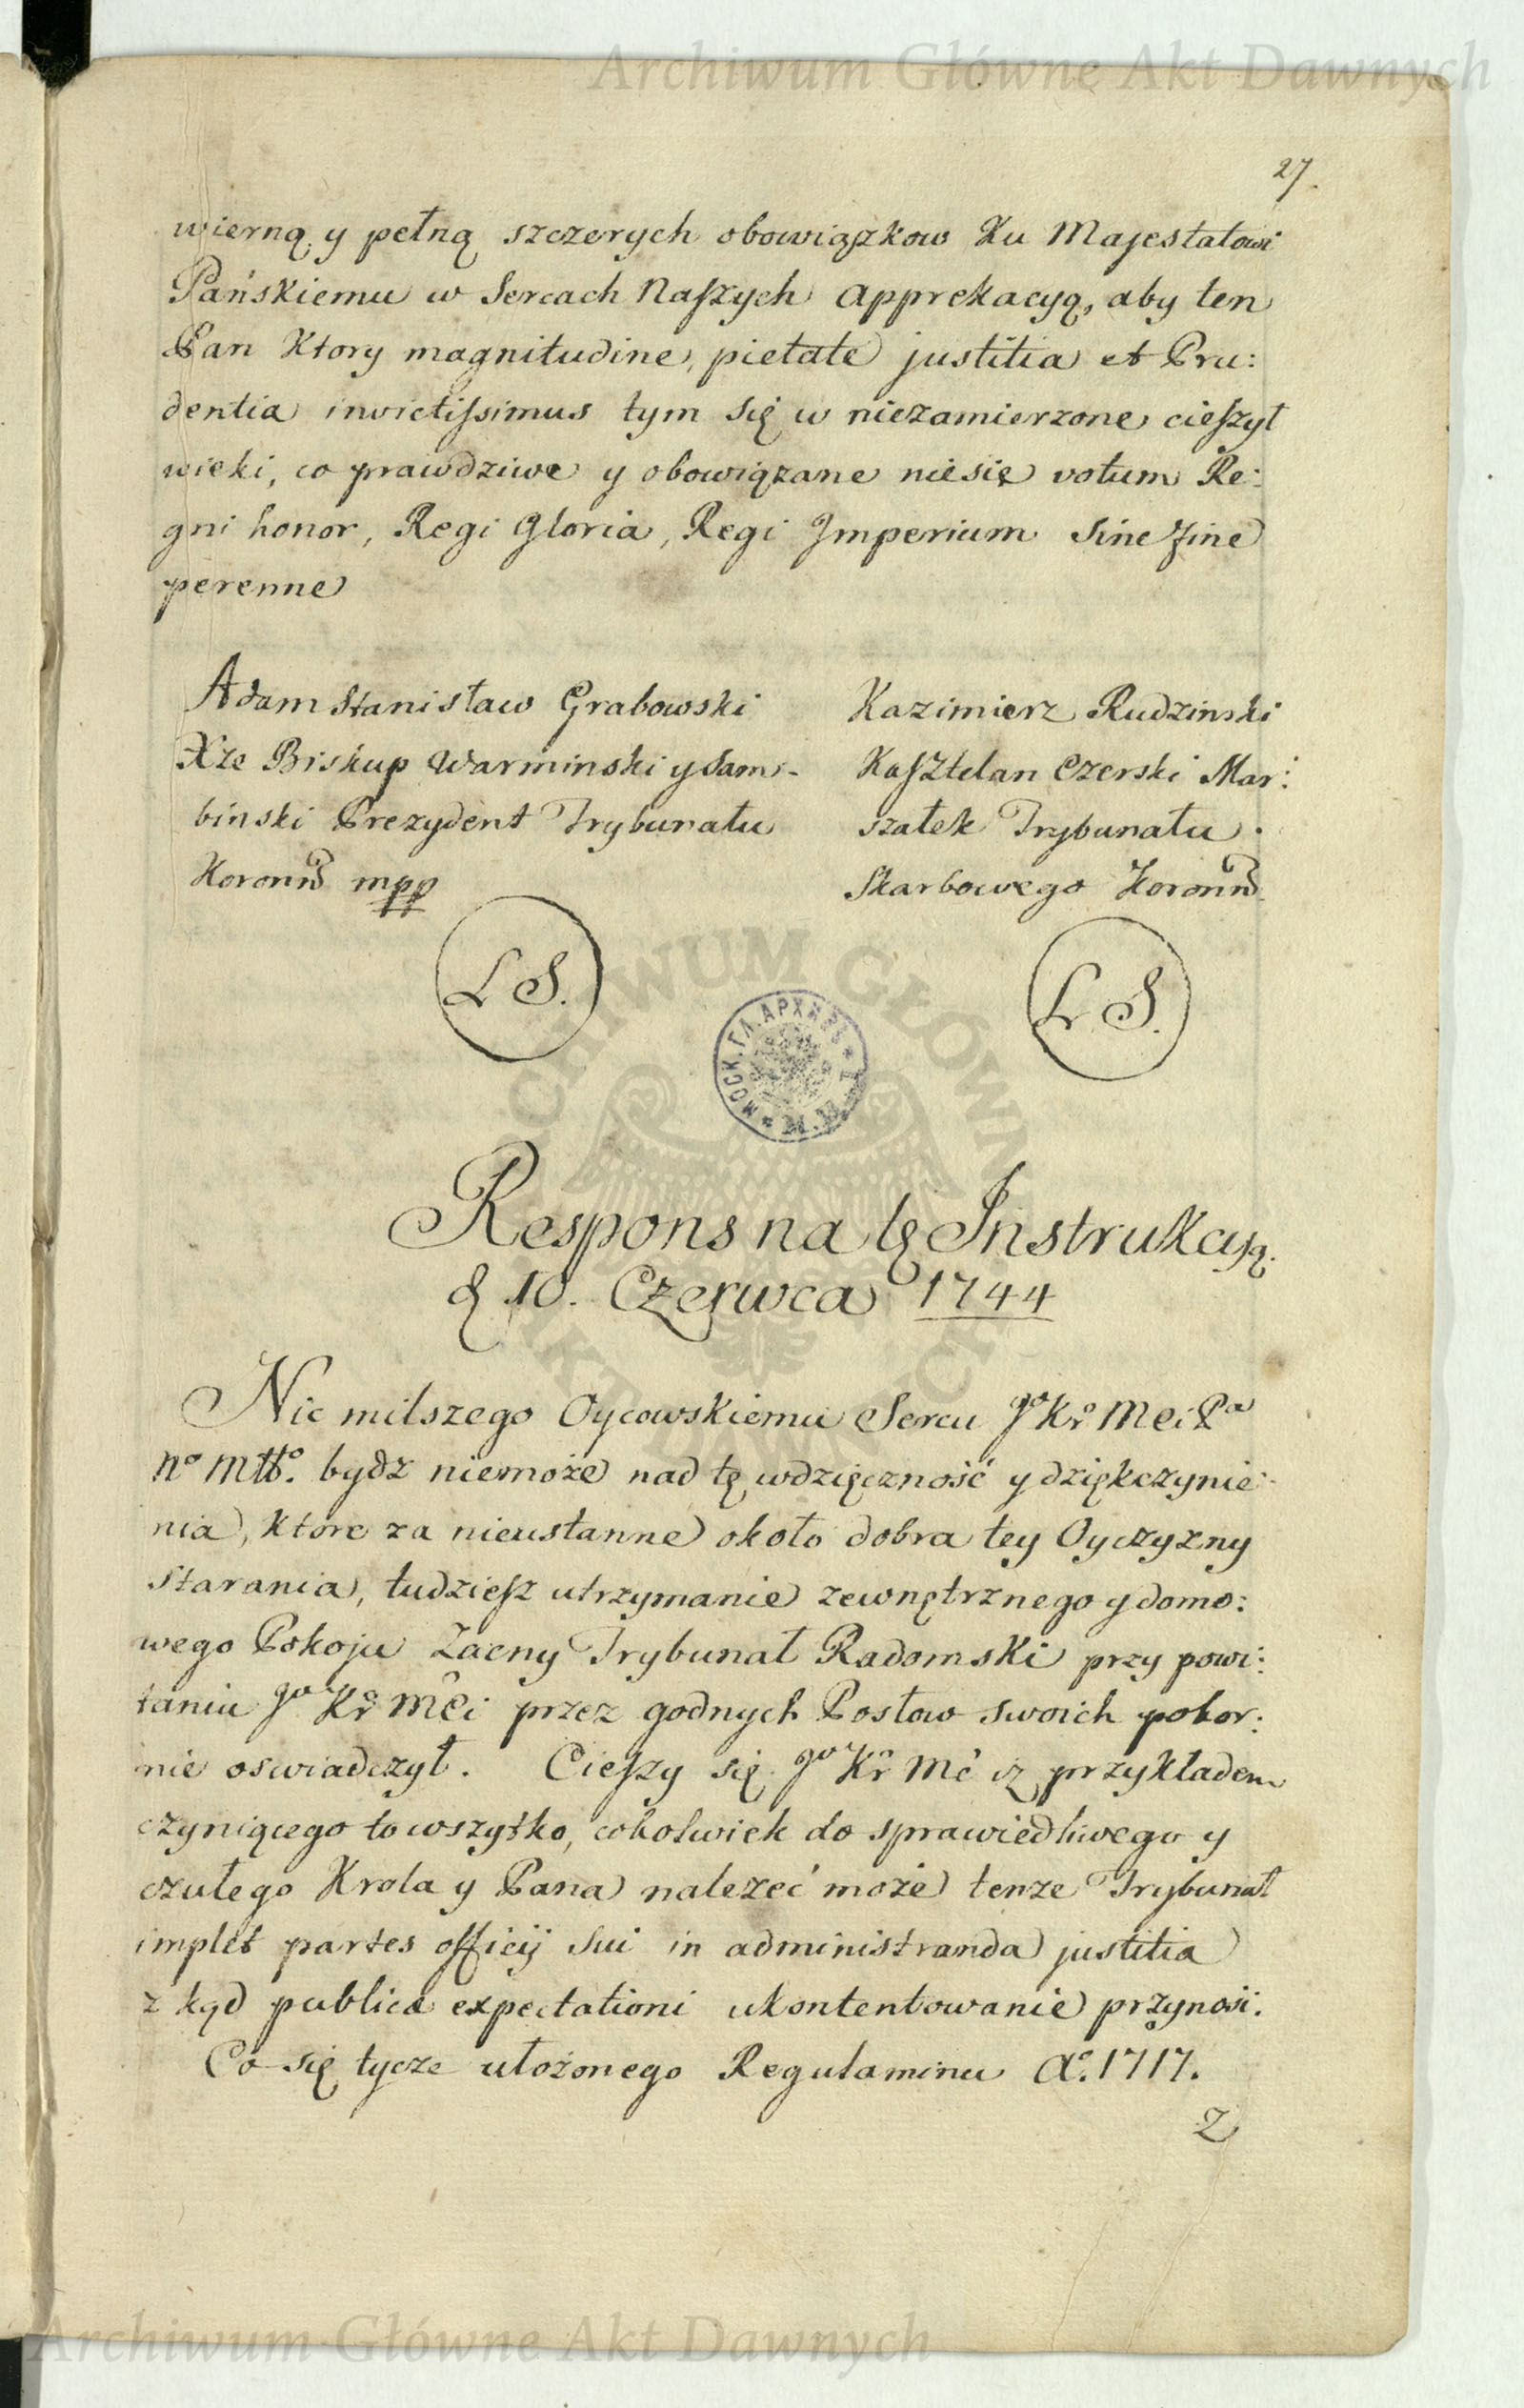 Archiwum Główne Akt Dawnych
27.
wierną y pełną szczerych obowiązkow Ku Majestatowi
Pańskiemu w Sercach Naszych apprekacyą, aby ten
Pan Ktory magnitudine, pietate justitia et Pru:
dentia invictissimus tym się w niezamierzone cieszył
wieki, co prawdziwe y obowiązane niesię votum Re:
gni honor, Regi Gloria, Regi Imperium Sine fine
perenne
Adam Stanisław Grabowski
Xże Biskup Warminski y Sam-
binski Prezydent Trybunału
Koronnº mpp
L S.
Kazimierz Rudzinski
Kasztelan Czerski Mar:
szałek Trybunału
Skarbowego Koronnº
L S.
МОСК. ГЛ. АРХИВЪ
Respons na tę Instrukcyą.
d 10. Czerwca 1744
Nic milszego Oycowskiemu Sercu Jº Kr Mci Pª
Nº Mttº. bydz niemoże nad tę wdzięczność y dziękczynie:
nia, ktore za nieustanne około dobra tey Oyczyzny
starania, tudziesz utrzymanie zewnętrznego y domo:
wego Pokoju Zacny Trybunał Radomski przy powi:
taniu Jº Kr Mci przez godnych Posłow swoich pokor:
nie oswiadczył. Cieszy się Jº Kr Mć iz przykładem
czyniącego to wszytko, cokolwiek do sprawiedliwego y
czułego Krola y Pana nalezeć może tenze Trybunał
implet partes officij sui in administranda justitia
z kąd publicæ expectationi ukontentowanie przynosi.
Co się tycze ułożonego Regulaminu Aº. 1717.
Z
Archiwum Główne Akt Dawnych